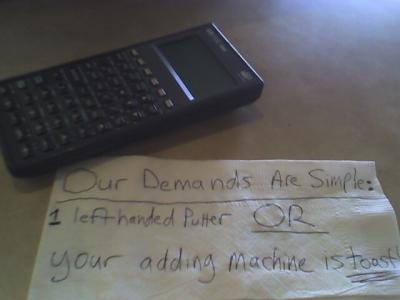 Our Demands Are Simple:
1 left handed Putter OR
your adding machine is toast!